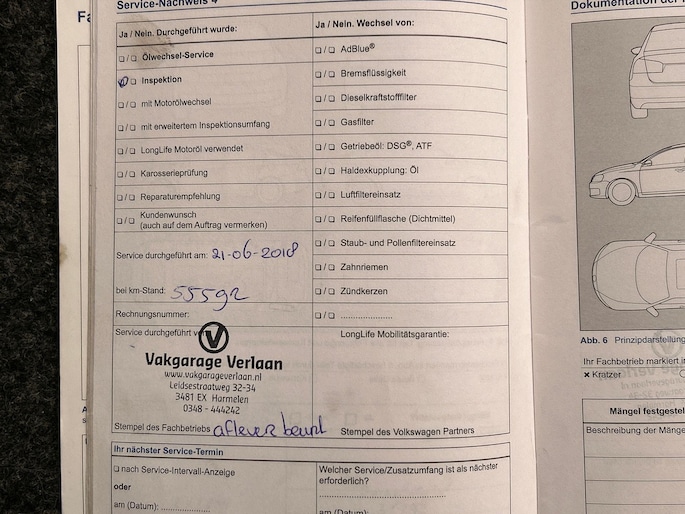 Fa
Service-Nachweis 4
Dokumentation der
Ja / Nein. Durchgeführt wurde:
❑ / ❑ Ölwechsel-Service
❑ / ❑ Inspektion
❑ / ❑ mit Motorölwechsel
❑ / ❑ mit erweitertem Inspektionsumfang
❑ / ❑ LongLife Motoröl verwendet
❑ / ❑ Karosserieprüfung
❑ / ❑ Reparaturempfehlung
❑ / ❑ Kundenwunsch
(auch auf dem Auftrag vermerken)
Service durchgeführt am: 21-06-2018
bei km-Stand: 55592
Rechnungsnummer:
Service durchgeführt
Vakgarage Verlaan
www.vakgarageverlaan.nl
Leidsestraatweg 32-34
3481 EX Harmelen
0348 - 444242
Stempel des Fachbetriebs aflever beurt
Ja / Nein. Wechsel von:
❑ / ❑ AdBlue®
❑ / ❑ Bremsflüssigkeit
❑ / ❑ Dieselkraftstofffilter
❑ / ❑ Gasfilter
❑ / ❑ Getriebeöl: DSG®, ATF
❑ / ❑ Haldexkupplung: Öl
❑ / ❑ Luftfiltereinsatz
❑ / ❑ Reifenfüllflasche (Dichtmittel)
❑ / ❑ Staub- und Pollenfiltereinsatz
❑ / ❑ Zahnriemen
❑ / ❑ Zündkerzen
❑ / ❑ ....................
LongLife Mobilitätsgarantie:
Stempel des Volkswagen Partners
Ihr nächster Service-Termin
❑ nach Service-Intervall-Anzeige
oder
am (Datum): ................
Welcher Service/Zusatzumfang ist als nächster
erforderlich?
am (Datum):
Abb. 6 Prinzipdarstellung
Ihr Fachbetrieb markiert
× Kratzer
Mängel festgestel
Beschreibung der Mänge